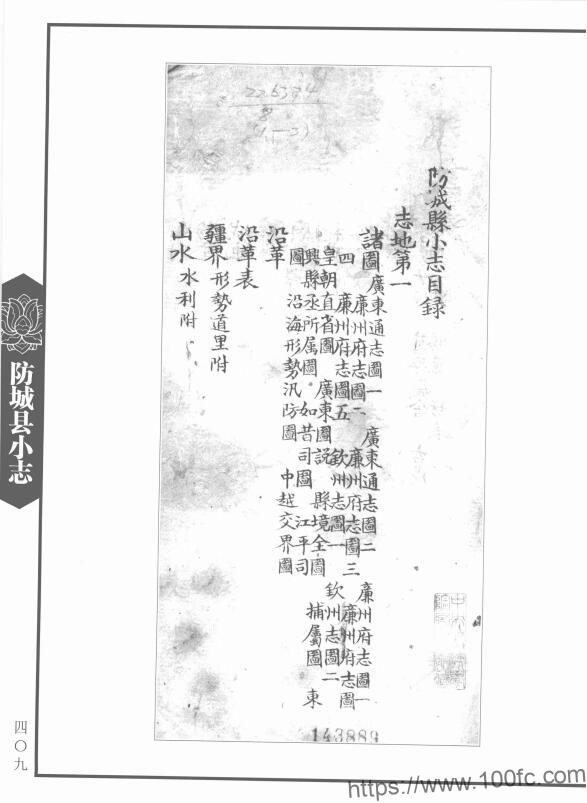 226374
8
(1-3)
防城縣小志目録
志地第一
諸圖 廣東通志圖一 廣東通志圖二 廉州府志圖一
廉州府志圖二 廉州府志圖三 廉州府志圖
四 廉州府志圖五 欽州志圖一 欽州志圖二
皇朝直省圖 廣東圖説 縣境全圖 捕屬圖 東
興縣丞所属圖 如昔司圖 江平司
圖 沿海形勢汛防圖 中越交界圖
沿革
沿革表
疆界 形勢道里附
山水 水利附
143889
防城县小志
四〇九
https://www.100fc.com